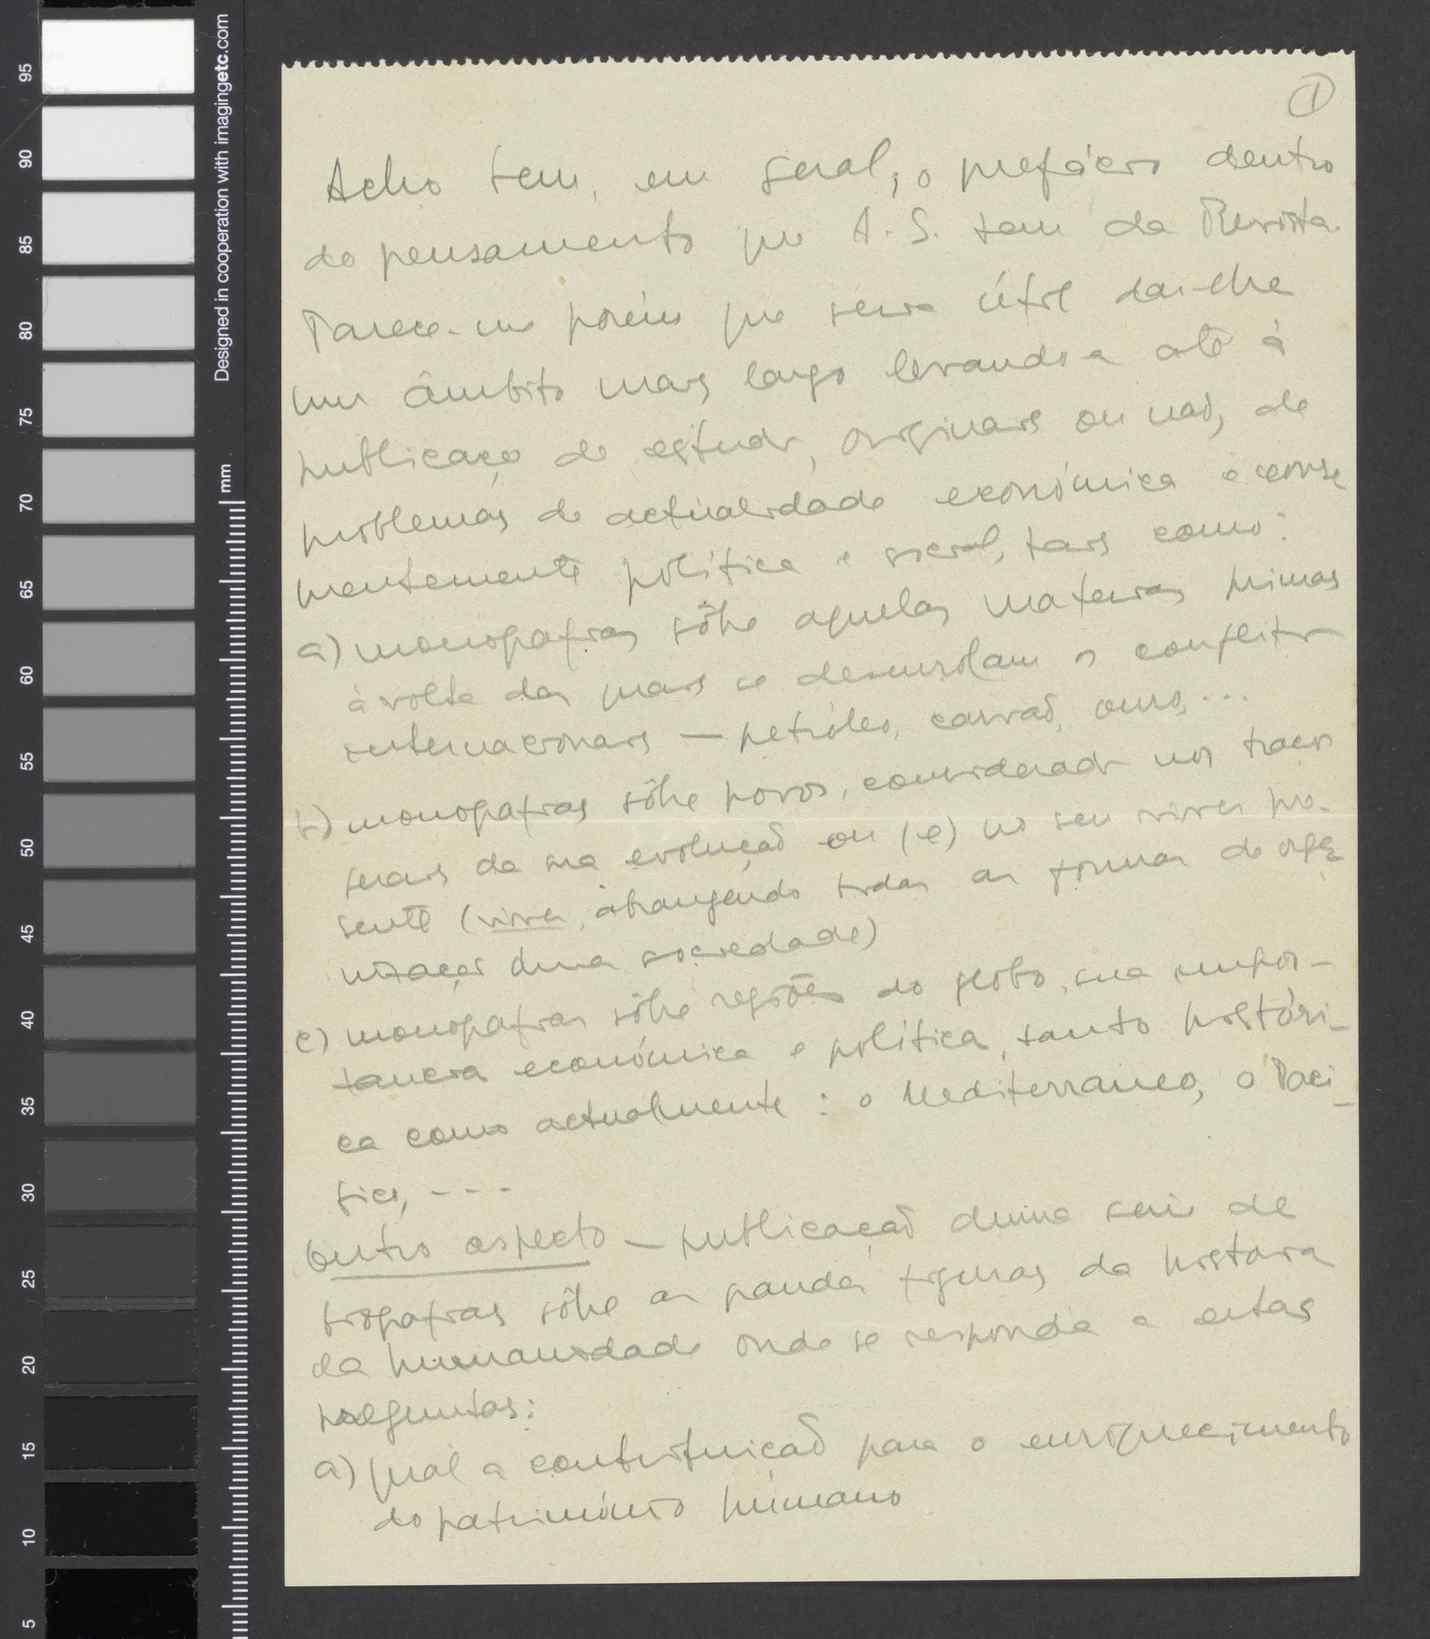 1
Acho bem, em geral, o prefácio dentro
do pensamento que A. S. tem da Revista.
Parece-me porém que seria útil dar-lhe
um âmbito mais largo levando-a até à
publicação de estudos, originais ou não, de
problemas de actualidade económica e conse
mentemente política e social, tais como:
a) monografias sôbre aquelas materias primas
à volta das quais se desenrolam os conflitos
internacionais — petróleo, carvão, ouro, ...
b) monografias sôbre povos, considerados nos traços
gerais da sua evolução ou (e) no seu viver pre-
sente (viver, abrangendo todas as formas de orga
nização duma sociedade)
c) monografias sôbre regiões do globo, sua impor-
tancia económica e política, tanto históri-
ca como actualmente: o Mediterraneo, o Pací-
fico, ---
Outro aspecto — publicação duma serie de
biografias sôbre as grandes figuras da historia
da humanidade onde se responda a estas
preguntas:
a) qual a contribuição para o enriquecimento
do património humano
Designed in cooperation with imagingetc.com
mm
95
90
85
80
75
70
65
60
55
50
45
40
35
30
25
20
15
10
5